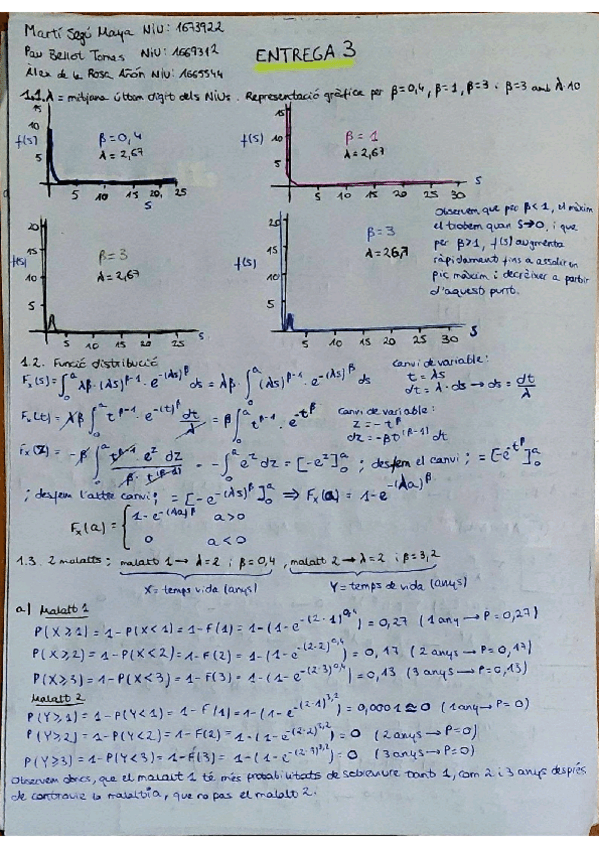 Martí Segú Maya NIU: 1673922
Pau Bellot Tomas NIU: 1669312
Àlex de la Rosa Añón NIU: 1665544
ENTREGA 3
1.1. λ = mitjana últim dígit dels NIUs. Representació gràfica per β=0,4, β=1, β=3 i β=3 amb λ·10
15
10
f(s)
5
β=0,4
λ=2,67
5 10 15 20 25
S
15
f(s) 10
5
β=1
λ=2,67
5 10 15 20 25 30 S
20
15
f(s)
10
5
β=3
λ=2,67
5 10 15 20 25 S
20
15
f(s)
10
5
β=3
λ=26,7
5 10 15 20 25 30 S
Observem que per β<1, el màxim
el trobem quan S→0, i que
per β>1, f(s) augmenta
ràpidament fins a assolir un
pic màxim i decréixer a partir
d'aquest punt.
1.2. Funció distribució
Fx(s)=∫₀ᵃ λβ·(λs)^(β-1)·e^(-(λs)^β) ds = λβ·∫₀ᵃ (λs)^(β-1)·e^(-(λs)^β) ds
Canvi de variable:
t=λs
dt=λ·ds→ds=dt/λ
Fx(t)=λβ∫₀ᵃ t^(β-1)·e^(-(t)^β) dt/λ = β∫₀ᵃ t^(β-1)·e^(-t^β)
Canvi de variable:
z=-t^β
dz=-βt^(β-1) dt
Fx(z)=-β∫₀ᵃ t^(β-1)·e^z dz/β·t^(β-1) = -∫₀ᵃ e^z dz=[-e^z]₀ᵃ ; desfem el canvi ; =[-e^(-t^β)]₀ᵃ
; desfem l'altre canvi; =[-e^(-(λs)^β)]₀ᵃ ⇒ Fx(a)=1-e^(-(λa)^β)
Fx(a)={ 1-e^(-(λa)^β) a>0
0 a<0
1.3. 2 malalts: malalt 1→λ=2 i β=0,4, malalt 2→λ=2 i β=3,2
X=temps vida (anys) Y=temps de vida (anys)
a) Malalt 1
P(X≥1)=1-P(X<1)=1-F(1)=1-(1-e^(-(2·1)^0,4))=0,27 (1 any→P=0,27)
P(X≥2)=1-P(X<2)=1-F(2)=1-(1-e^(-(2·2)^0,4))=0,17 (2 anys→P=0,17)
P(X≥3)=1-P(X<3)=1-F(3)=1-(1-e^(-(2·3)^0,4))=0,13 (3 anys→P=0,13)
Malalt 2
P(Y≥1)=1-P(Y<1)=1-F(1)=1-(1-e^(-(2·1)^3,2))=0,0001≅0 (1 any→P=0)
P(Y≥2)=1-P(Y<2)=1-F(2)=1-(1-e^(-(2·2)^3,2))=0 (2 anys→P=0)
P(Y≥3)=1-P(Y<3)=1-F(3)=1-(1-e^(-(2·3)^3,2))=0 (3 anys→P=0)
Observem doncs, que el malalt 1 té més probabilitats de sobreviure tant 1, com 2 i 3 anys després
de contraure la malaltia, que no pas el malalt 2.